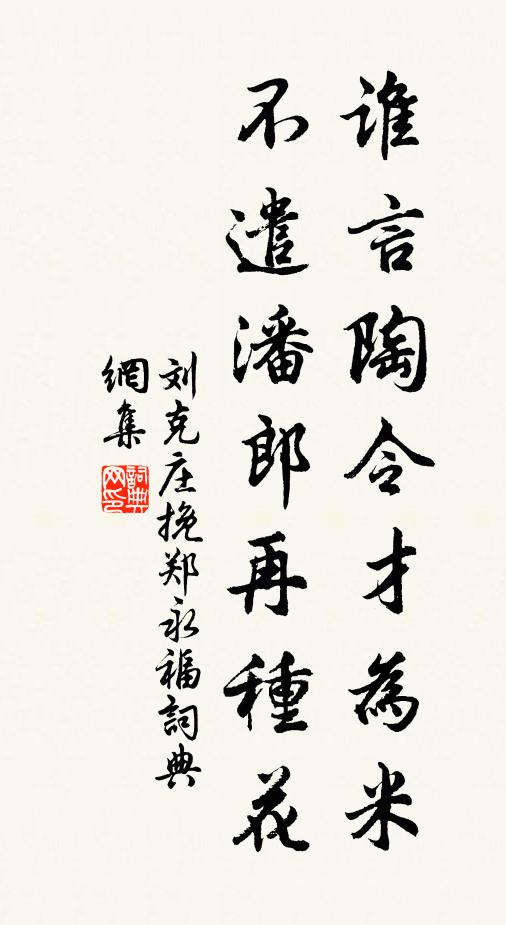 谁言陶令才為米
不遣潘郎再種花
刘克庄挽郑永福詞典
網集
詞典網印